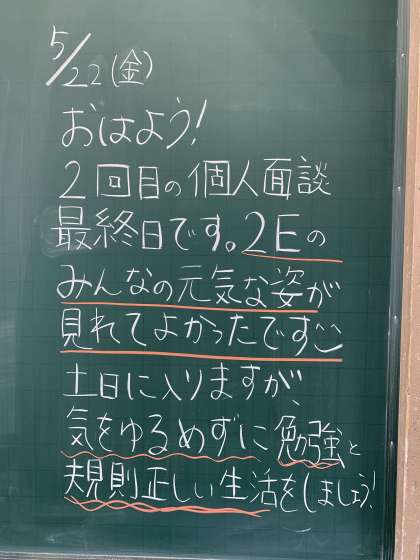 5/22(金)
おはよう!
2回目の個人面談
最終日です。2Eの
みんなの元気な姿が
見れてよかったです
土日に入りますが、
気をゆるめずに勉強と
規則正しい生活をしましょう!